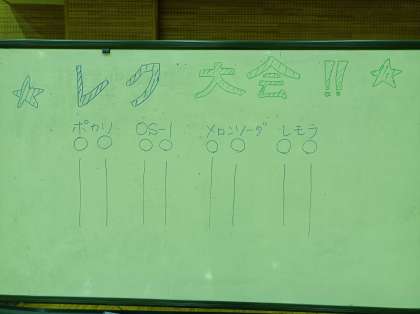 ☆レク大会!!☆
ポカリ OS-1 メロンソーダ レモラ